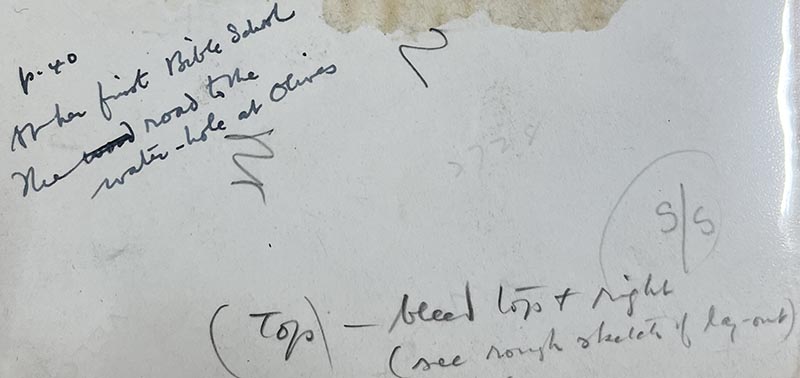 p. 40
At her first Bible School
The road road to the
water-hole at Olives
2728
S/S
(Top) — bleed top + right
(see rough sketch of lay-out)